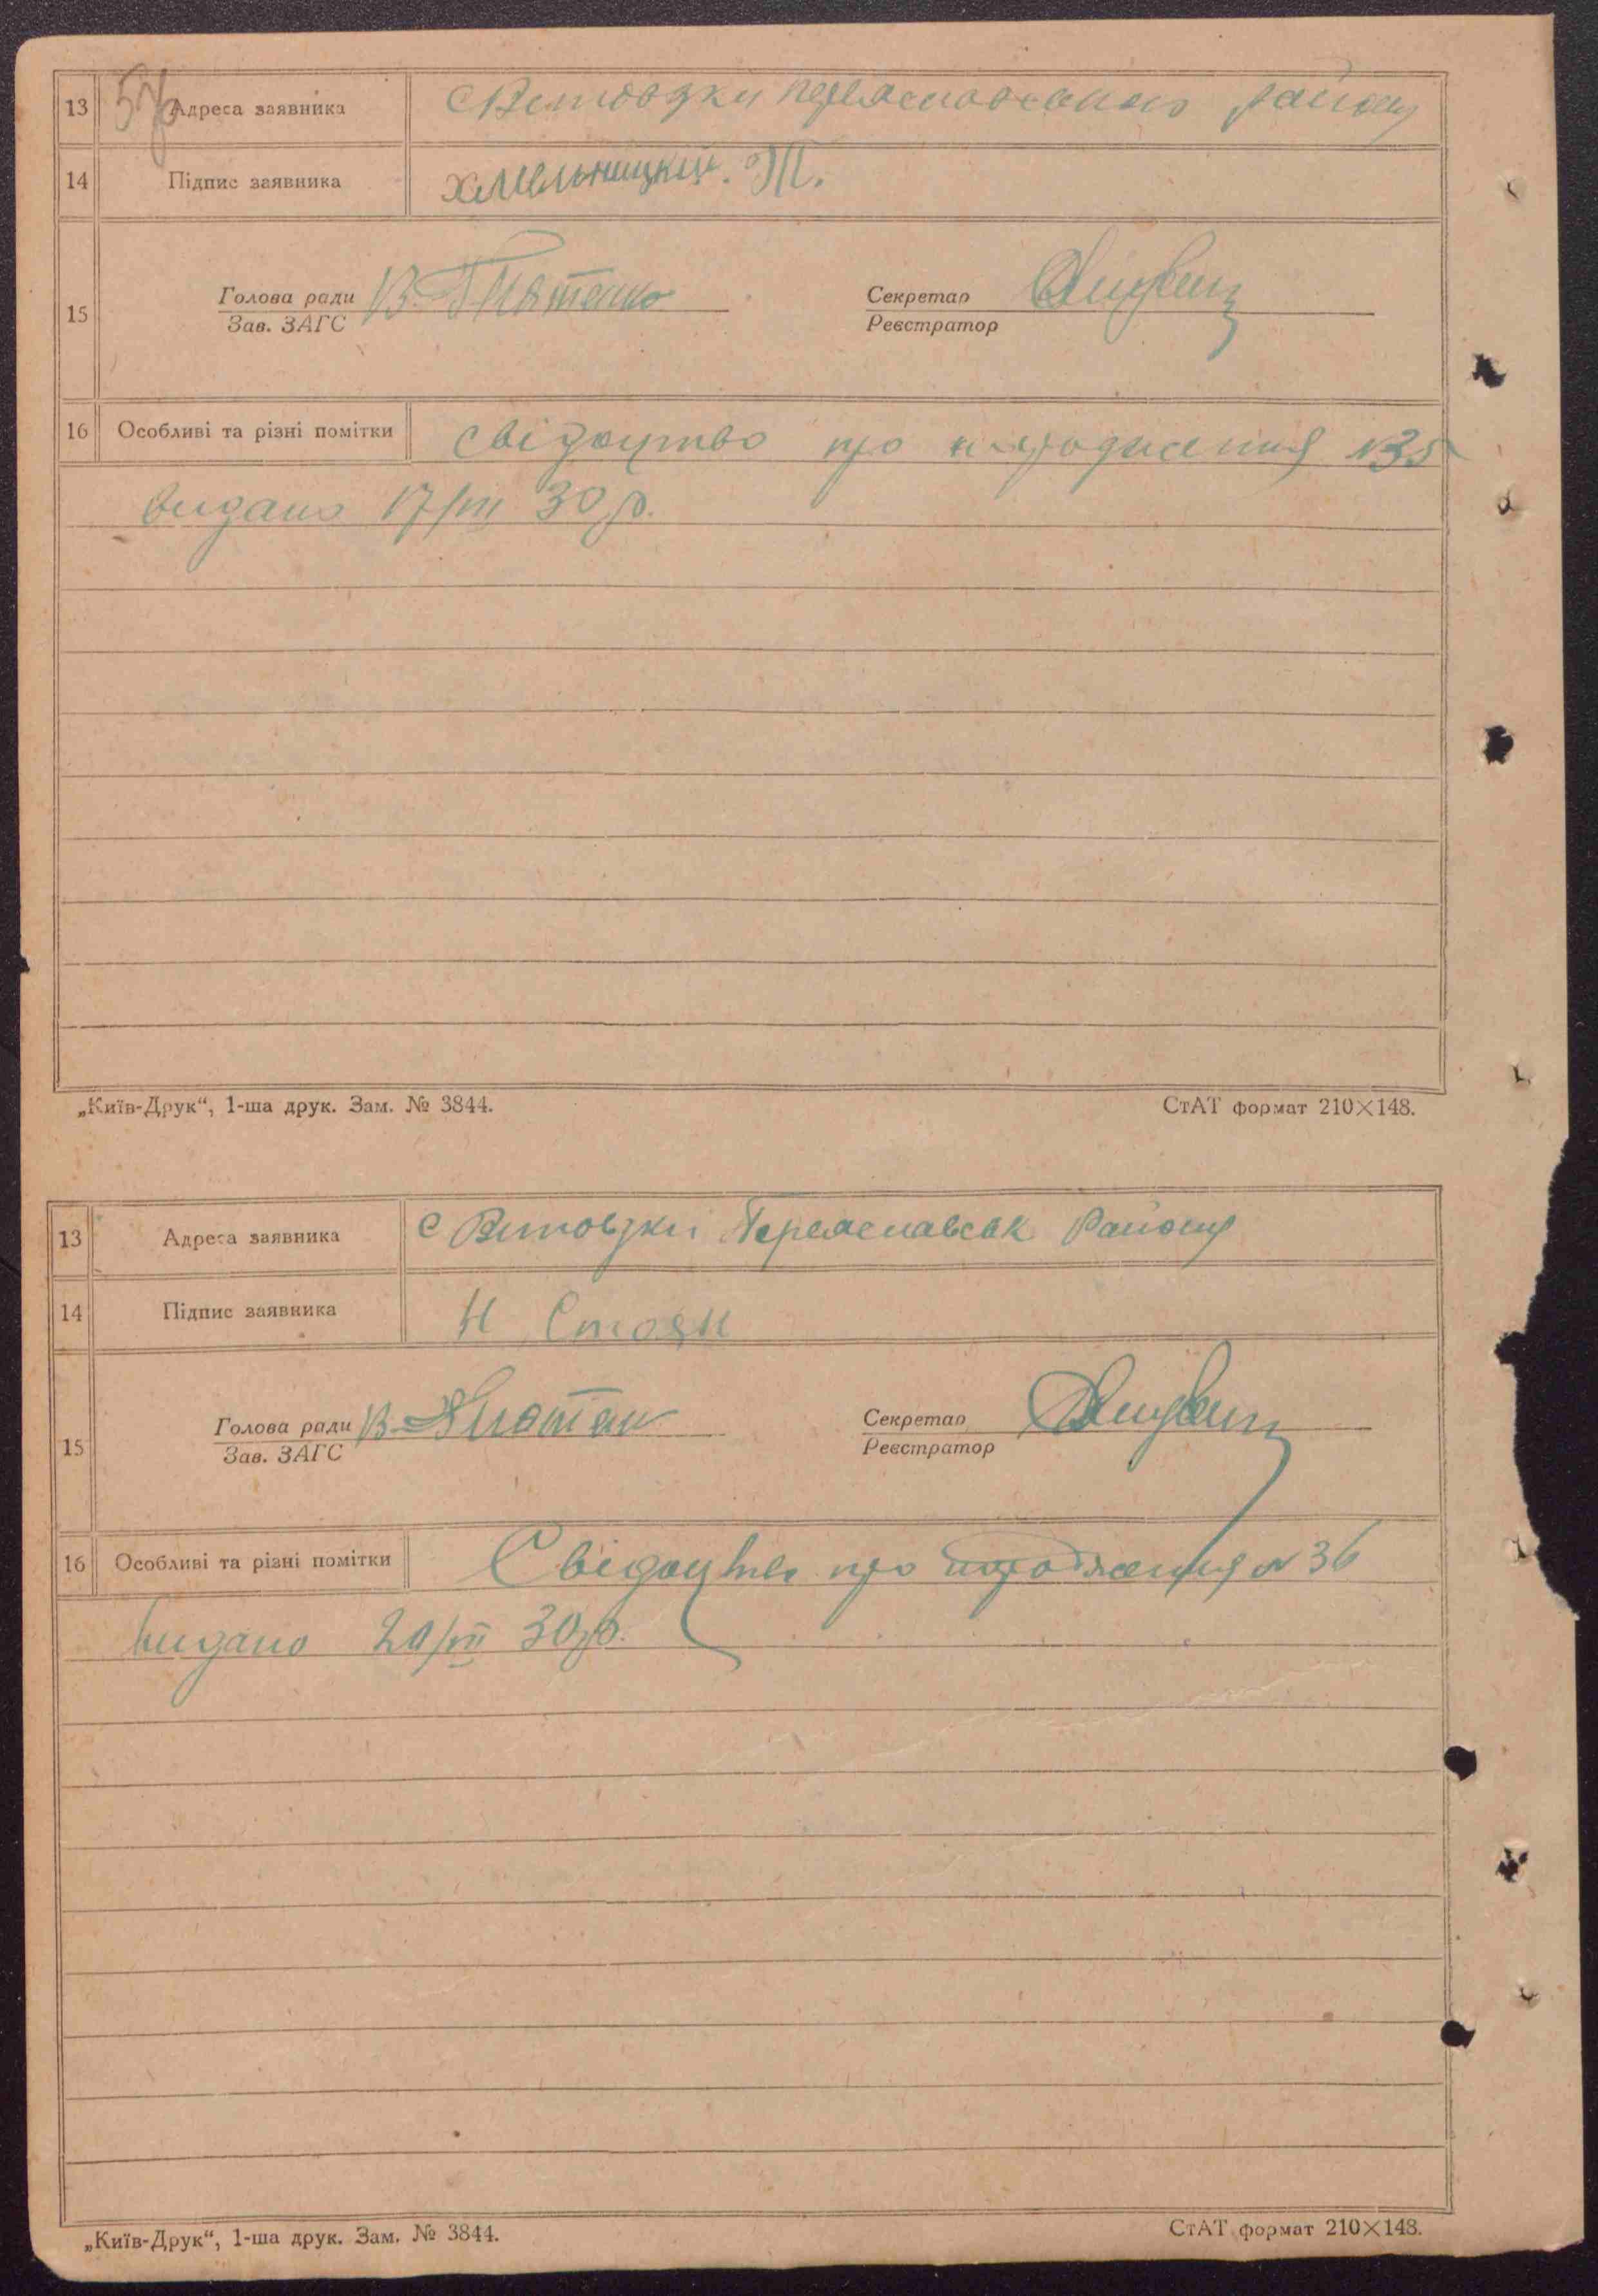 13 Адреса заявника с Вітовзки Переяславського району
14 Підпис заявника Хмельницкий. Т.
15 Голова ради В. Гнатенко Секретар
Зав. ЗАГС Реєстратор
16 Особливі та різні помітки свідоцтво про народження №35
видано 17/III 30 р.
„Київ-Друк“, 1-ша друк. Зам. № 3844. СтАТ формат 210×148.
13 Адреса заявника с Вітовзки Переяславськ Району
14 Підпис заявника Н Стоян
15 Голова ради В. Секретар
Зав. ЗАГС Реєстратор
16 Особливі та різні помітки Свідоцтво про народження № 36
видано 20/III 30 р.
„Київ-Друк“, 1-ша друк. Зам. № 3844. СтАТ формат 210×148.